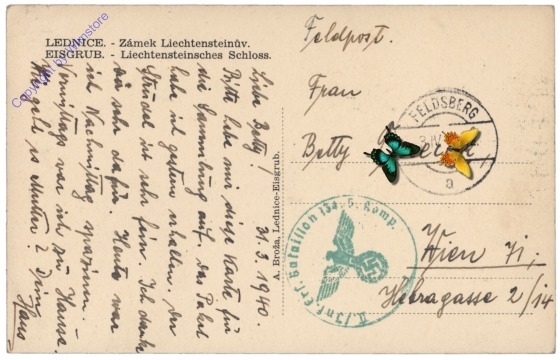 LEDNICE. - Zámek Liechtensteinův.
EISGRUB. - Liechtensteinsches Schloss.
31.3.1940.
Liebe Betty!
Bitte hebe mir diese Karte für
die Sammlung auf. Das Paket
habe ich gestern erhalten. Der
Strudel ist sehr fein. Ich danke
Dir sehr dafür. Heute war
ich Nachmittag spazieren.
Vormittags war ich zu Hause.
Wie geht es Mutter? Dein
Hans
A. Broža, Lednice-Eisgrub.
Feldpost.
Frau
Betty
Wien
2/14
FELDSBERG
a
II./Inf. Ers. Bataillon 6. Komp.